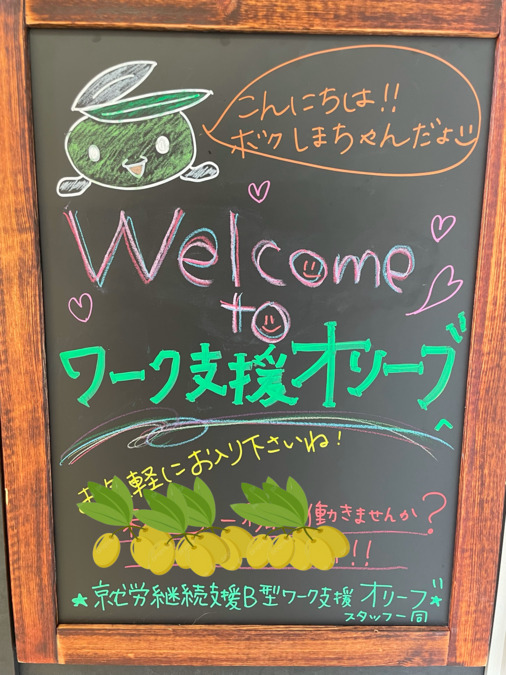 こんにちは!!
ボクしまちゃんだよ
Welcome
to
ワーク支援オリーブ
お気軽にお入り下さいね!
働きませんか?
!!
★京尤労継続支援B型ワーク支援 オリーブ★
スタッフ一同